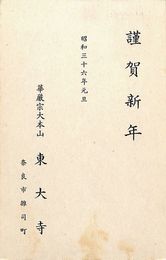 謹賀新年
昭和三十六年元旦
華厳宗大本山
東大寺
奈良市雑司町